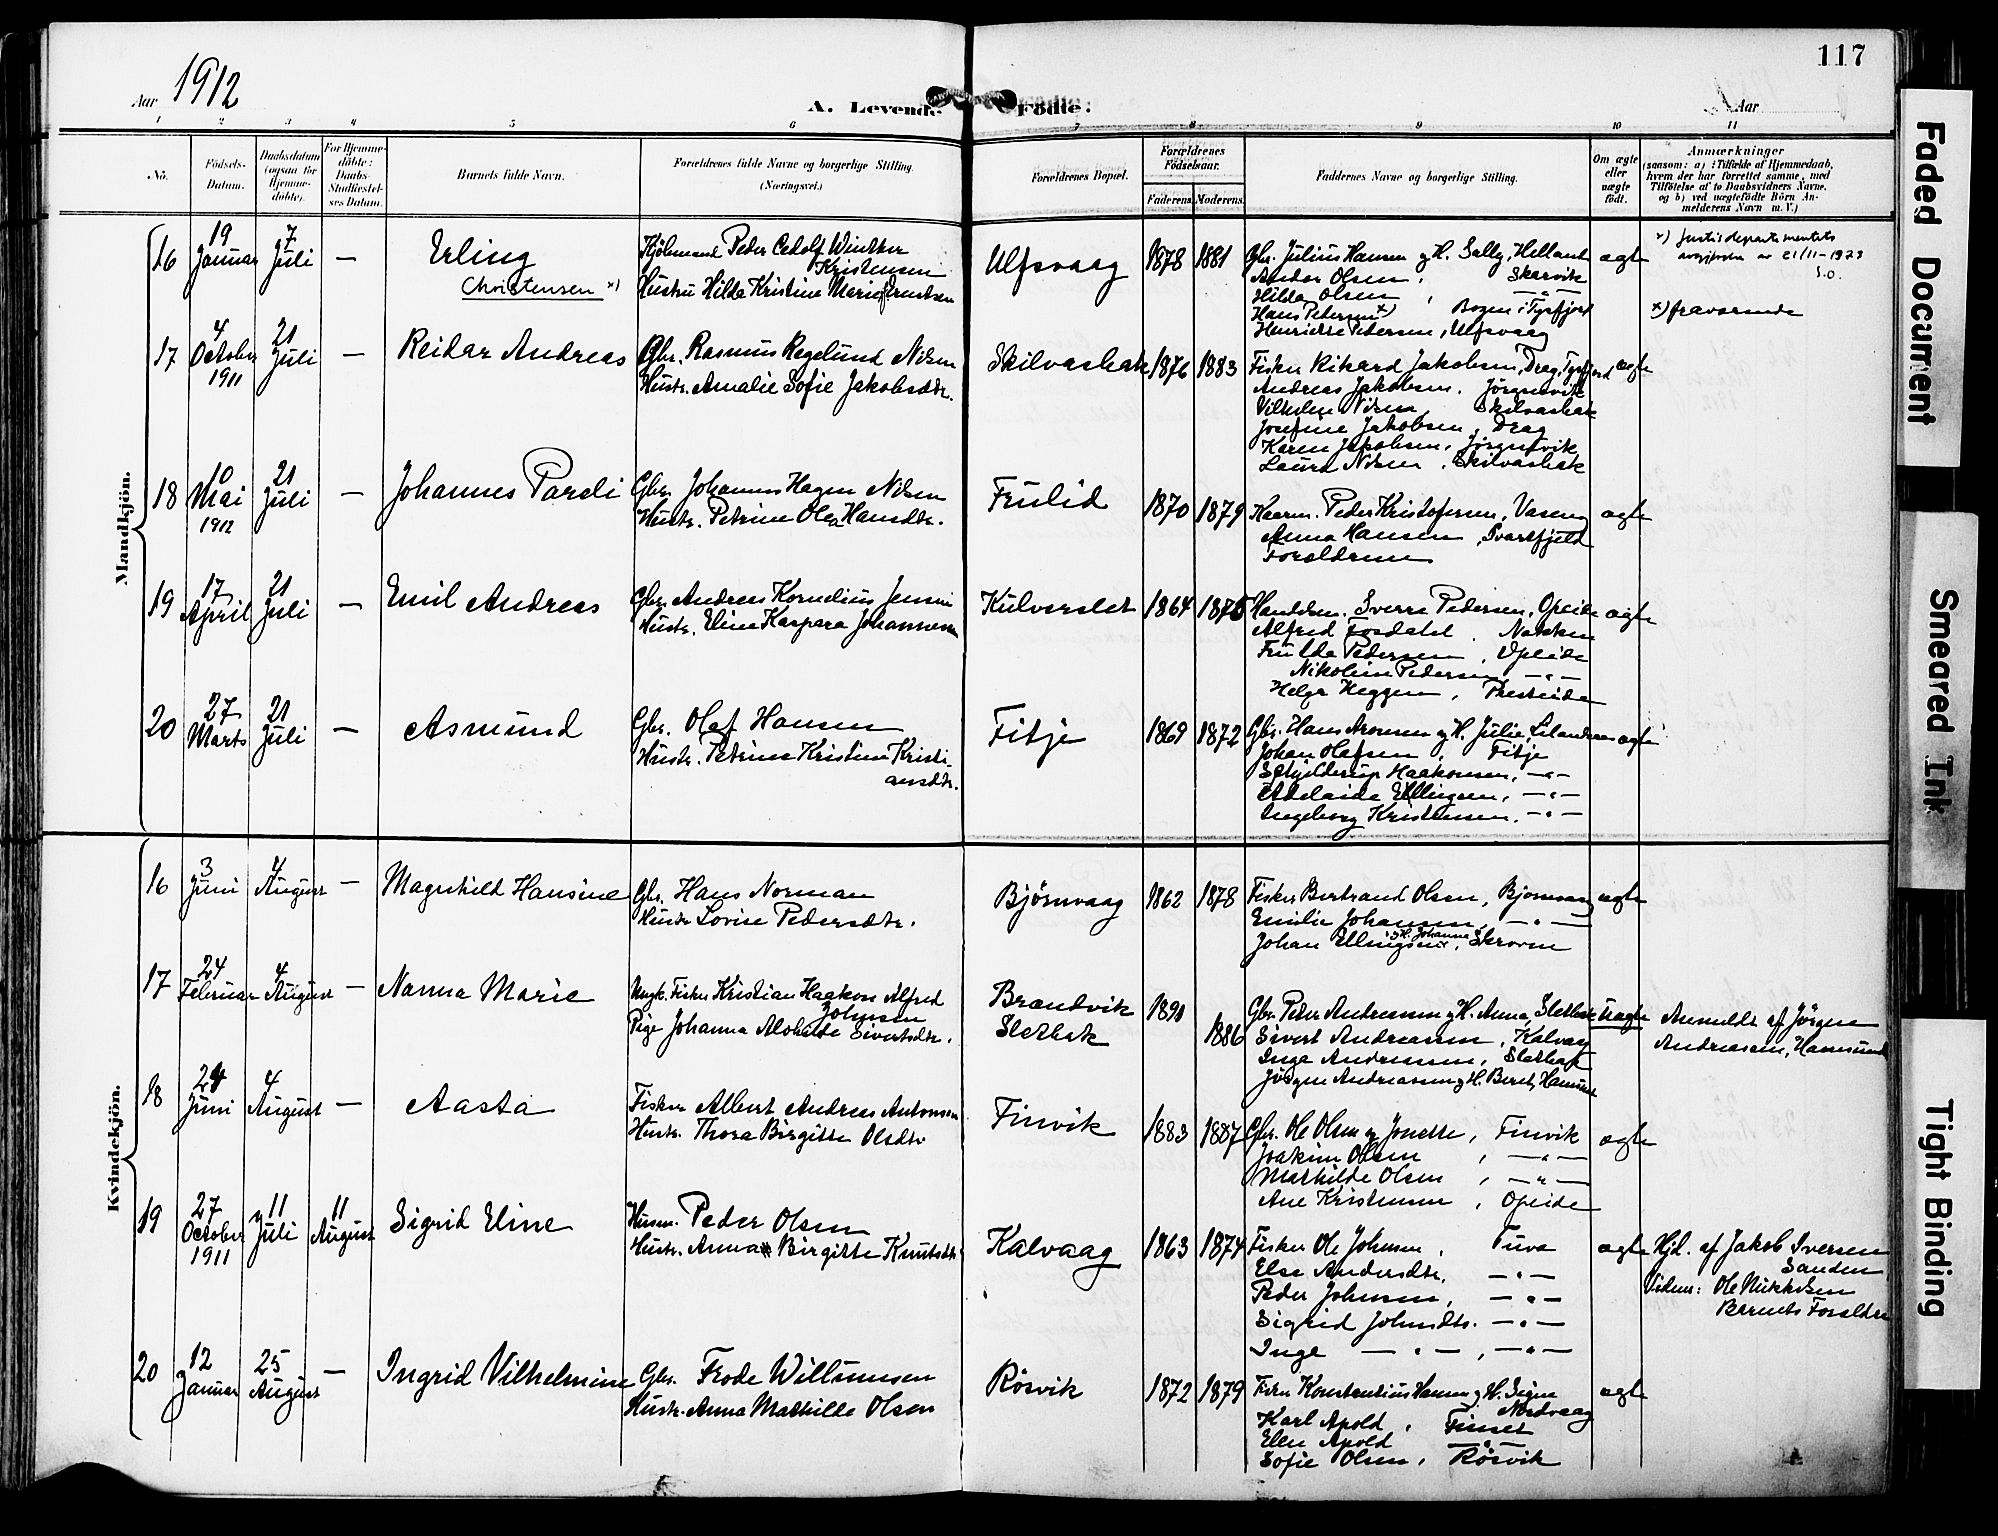 117
Aar 1912
A. Levende Födte:
Aar
1 2 3 4 5 6 7 8 9 10 11
No.
Födsels-Datum.
Daabsdatum (ogsaa for Hjemme-döbte).
For Hjemme-döbte: Daabs-Stadfæstel-ses Datum.
Barnets fulde Navn.
Forældrenes fulde Navne og borgerlige Stilling. (Næringsvei.)
Forældrenes Bopæl.
Forældrenes Födselsaar.
Faderens. Moderens.
Faddernes Navne og borgerlige Stilling.
Om ægte eller uægte födt.
Anmærkninger
(saasom: a) i Tilfælde af Hjemmedaab, hvem der har forrettet samme, med Tilföielse af to Daabsvidners Navne, og b) ved uægtefödte Börn An-melderens Navn m. V.)
Mandkjön.
16 19 Januar 7 Juli — Erling
Christensen x)
Peder Adolf Winther
Kristensen
Hustru Hilda Kristine Marie Arntsen
Ulfsvaag 1878 1881
Gbr. Julius Hansen og H. Sally, Helland
Andor Olsen, Skarvik
Hilda Olsen, —"—
Hans Petersen x) Bogen i Tysfjord
Henriette Petersen, Ulfsvaag
ægte
x) Justisdepartementets
avgjørelse av 21/11-1923
S.O.
x) fraværende
17 4 October 1911 21 Juli — Reidar Andreas
Gbr. Rasmus Regelund Nilsen
Hustr. Amalie Sofie Jakobsdtr.
Skilvasbak 1876 1883
Fisker Rikard Jakobsen, Drag, Tysfjord
Andreas Jakobsen, Jørgensvik
Nilsen, Skilvasbak
Josefine Jakobsen, Drag
Karen Jakobsen, Jørgensvik
Laura Nilsen, Skilvasbak
ægte
18 10 Mai 1912 21 Juli — Johannes Pareli
Gbr. Johannes Hagen Nilsen
Hustr. Petrine Olea Hansdtr.
Frulid 1870 1879
Peder Kristofersen, Vaseng
Anna Hansen, Svartfjeld
Forældrene
ægte
19 17 April 21 Juli — Emil Andreas
Gbr. Andreas Kornelius Jensen
Hustr. Eline Kaspara Johannesen
Kulverslet 1864 1875
Sverre Pedersen, Opeide
Alfred Fosdahl, Nakken
Pedersen, Opeide
Nikoline Pedersen, —"—
Helga Heggen, Presteide
ægte
20 27 Marts 21 Juli — Asmund
Gbr. Olaf Hansen
Hustr. Petrine Kristine Kristi-
ansdtr.
Fitje 1869 1872
Gbr. Hans Aronsen og H. Julie
Johan Olafsen, Fitje
Schjelderup Haakonsen, —"—
Adelaide Ellingsen, —"—
Ingeborg Kristensen, —"—
ægte
Kvindekjön.
16 3 Juni 4 August — Magnhild Hansine
Gbr. Hans Norman
Hustr Lovise Pedersdtr.
Bjørnvaag 1862 1878
Fisker Bertrand Olsen, Bjørnvaag
Emilie Johansen, —"—
Johan Ellingsen og H. Johanna, Skroven
ægte
17 24 Februar 4 August — Nanna Marie
Ungk. Fisker Kristian Haakon Alfred
Johnsen
Pige Johanna Alvhilde Sivertsdtr.
Brandvik
Sletbak
1890
1886
Gbr. Peder Andreassen og H. Anna, Sletbak
Sivert Andreassen, Kalvaag
Inga Andreassen, Sletbak
Jørgen Andreassen og H. Beret, Hamsund
uægte
Anmeldt af Jørgen
Andreassen, Hamsund
18 24 Juni 4 August — Aasta
Fisker Albert Andreas Antonsen
Hustr. Thora Birgitte Olsdtr
Finvik 1883 1887
Gbr. Ole Olsen og Jonette, Finvik
Joakim Olsen, —"—
Mathilde Olsen, —"—
Ane Kristensen, Opeide
ægte
19 27 October 1911 11 Juli 11 August Sigrid Eline
Husm. Peder Olsen
Hustr. Anna Birgitte Knutsdtr
Kalvaag 1863 1874
Fisker Ole Johnsen, Tuva
Else Andersdtr. —"—
Peder Johnsen, —"—
Sigrid Johnsdtr. —"—
Inge —"—, —"—
ægte
Hjd. af Jakob Iversen
Sanden
Vidner: Ole Mikkelsen
Barnets Forældre
20 12 Januar 25 August — Ingrid Vilhelmine
Gbr. Frode Willumsen
Hustr. Anna Mathilde Olsen
Røsvik 1872 1879
Fisker Konstantius Hansen og H. Signe
Nordvaag
Karl Apold, Finset
Ellen Apold —"—
Sofie Olsen, Røsvik
ægte
Faded Document
Smeared Ink
Tight Binding